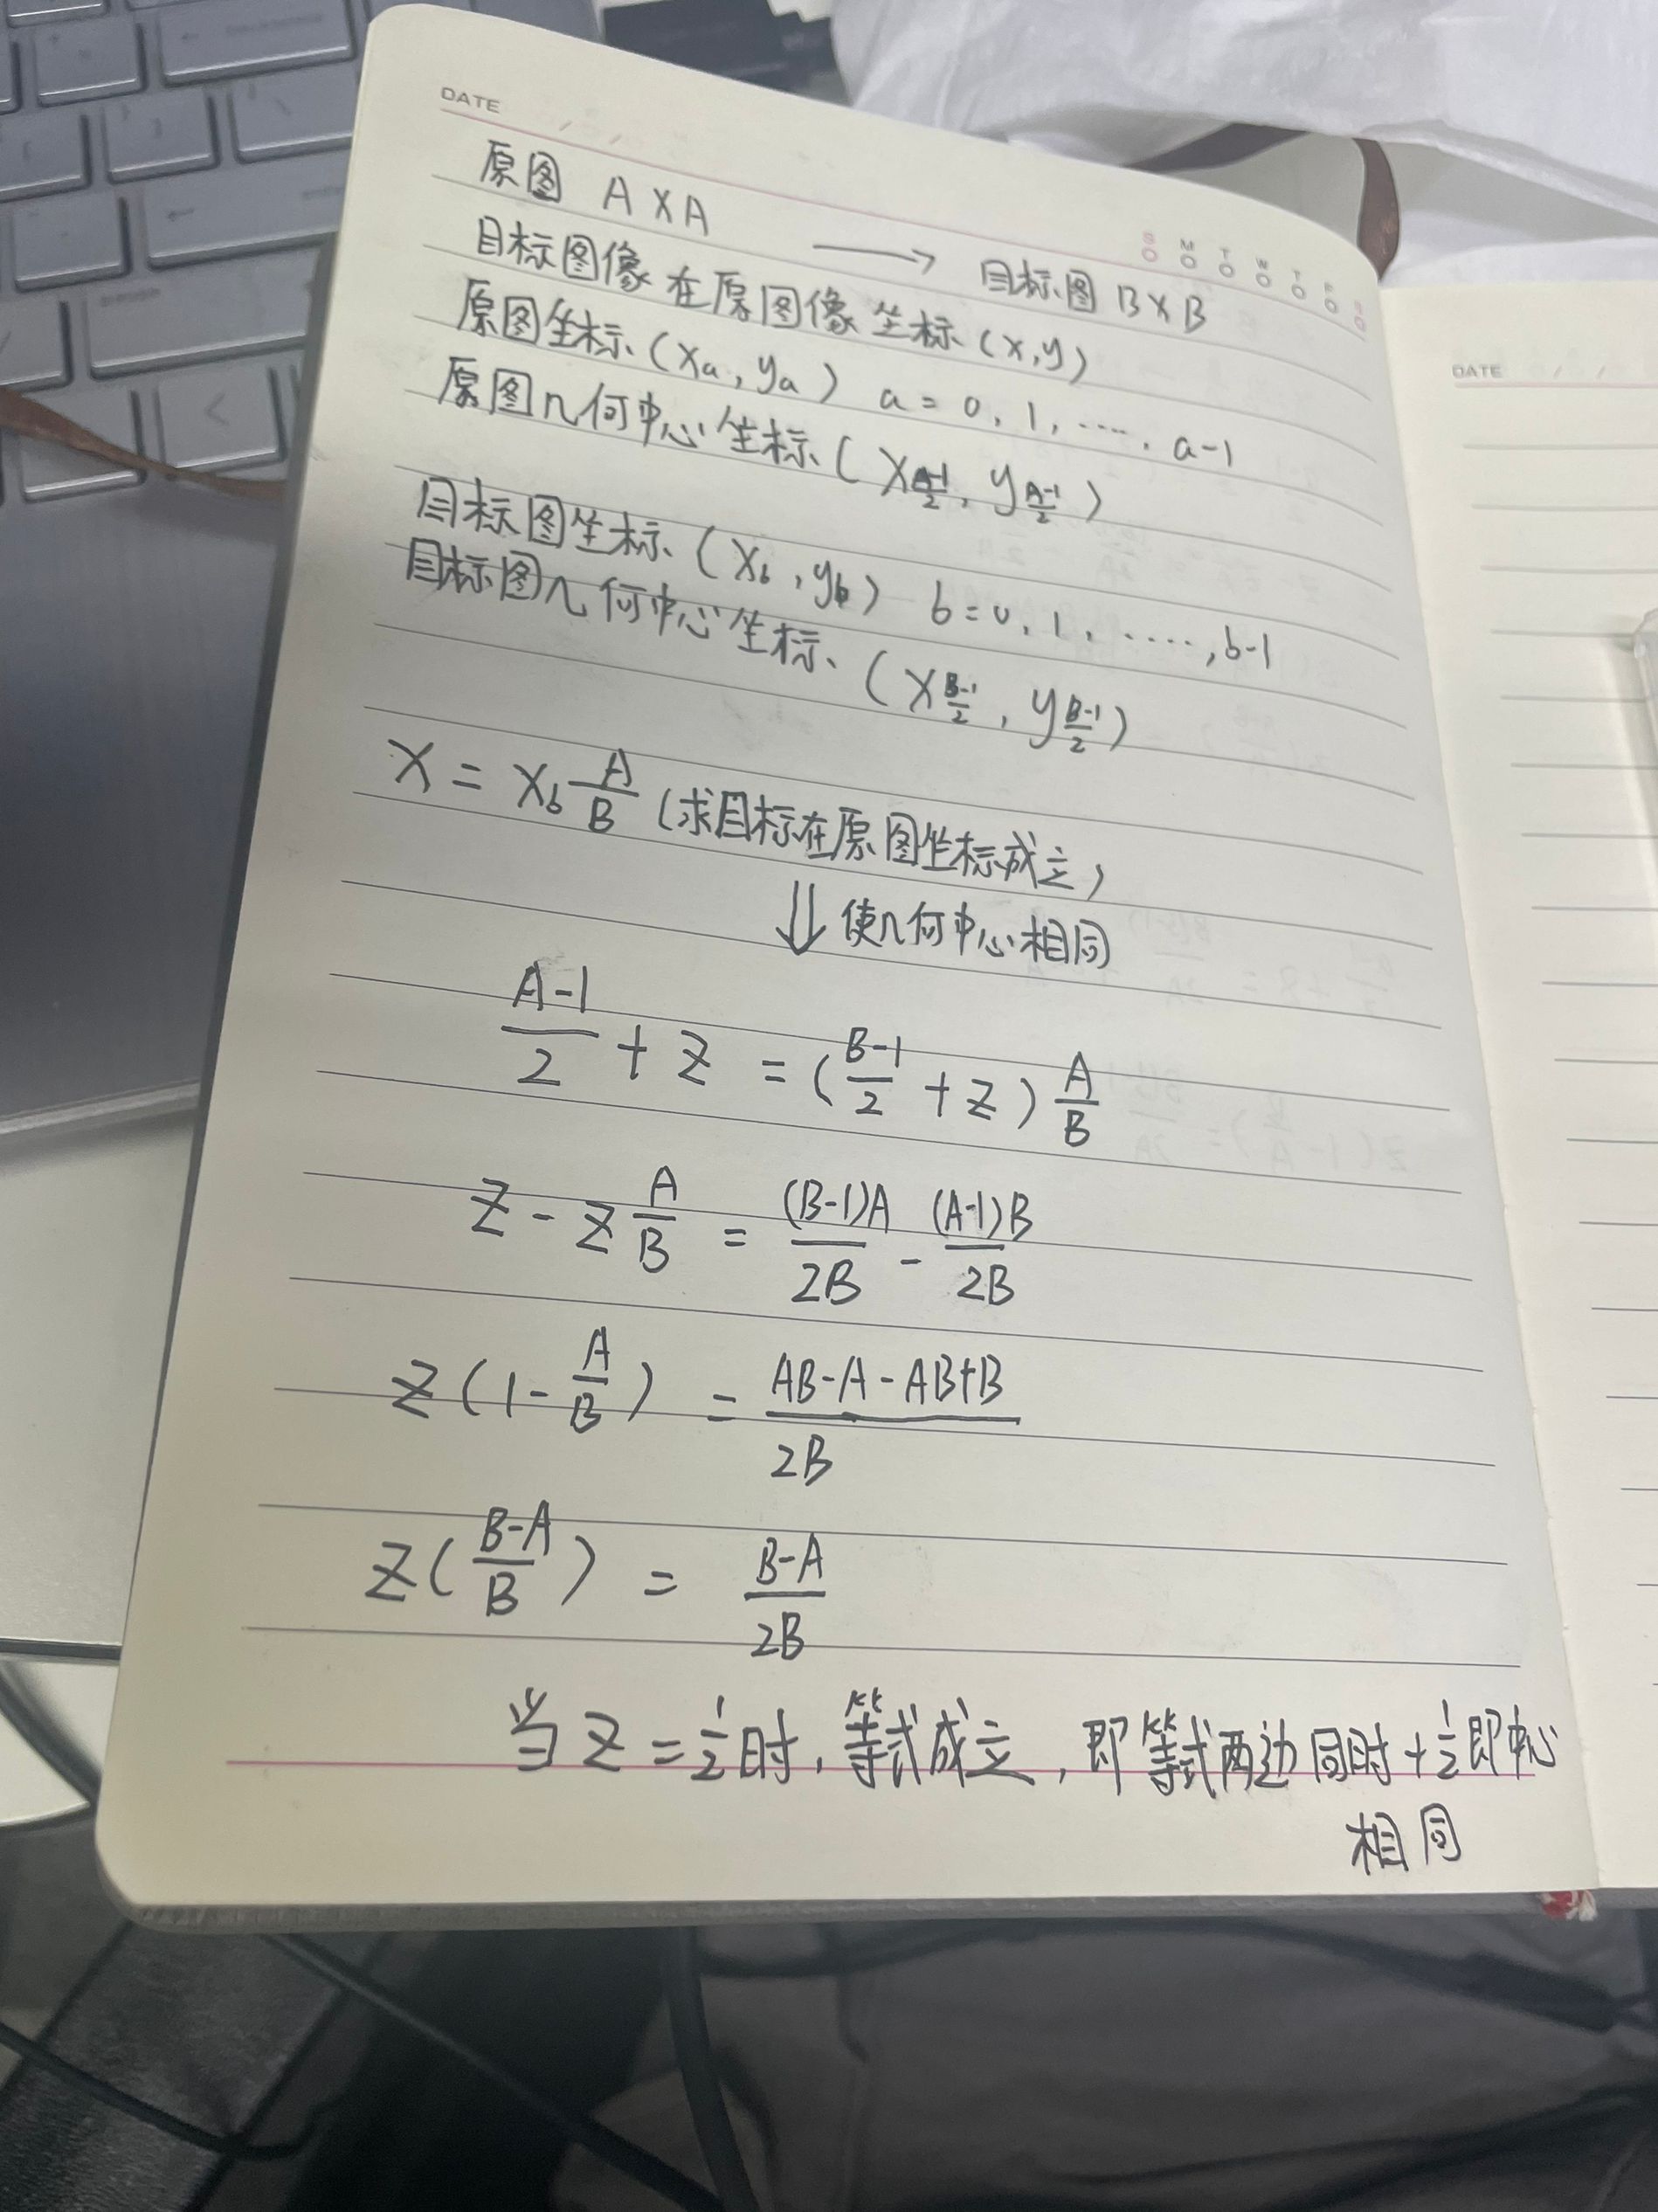 DATE
原图 A×A ⟶ 目标图 B×B
S M T W T F S
目标图像在原图像坐标(x,y)
原图坐标(xₐ, yₐ) a=0, 1, ……, a-1
原图几何中心坐标(x_{\frac{A-1}{2}}, y_{\frac{A-1}{2}})
目标图坐标(x_b, y_b) b=0, 1, ……, b-1
目标图几何中心坐标(x_{\frac{B-1}{2}}, y_{\frac{B-1}{2}})
X = x_b \frac{A}{B} (求目标在原图坐标成立)
⇓ 使几何中心相同
\frac{A-1}{2} + Z = (\frac{B-1}{2} + Z) \frac{A}{B}
Z - Z \frac{A}{B} = \frac{(B-1)A}{2B} - \frac{(A-1)B}{2B}
Z(1-\frac{A}{B}) = \frac{AB-A-AB+B}{2B}
Z(\frac{B-A}{B}) = \frac{B-A}{2B}
当Z=\frac{1}{2}时,等式成立,即等式两边同时+\frac{1}{2}即中心
相同
DATE